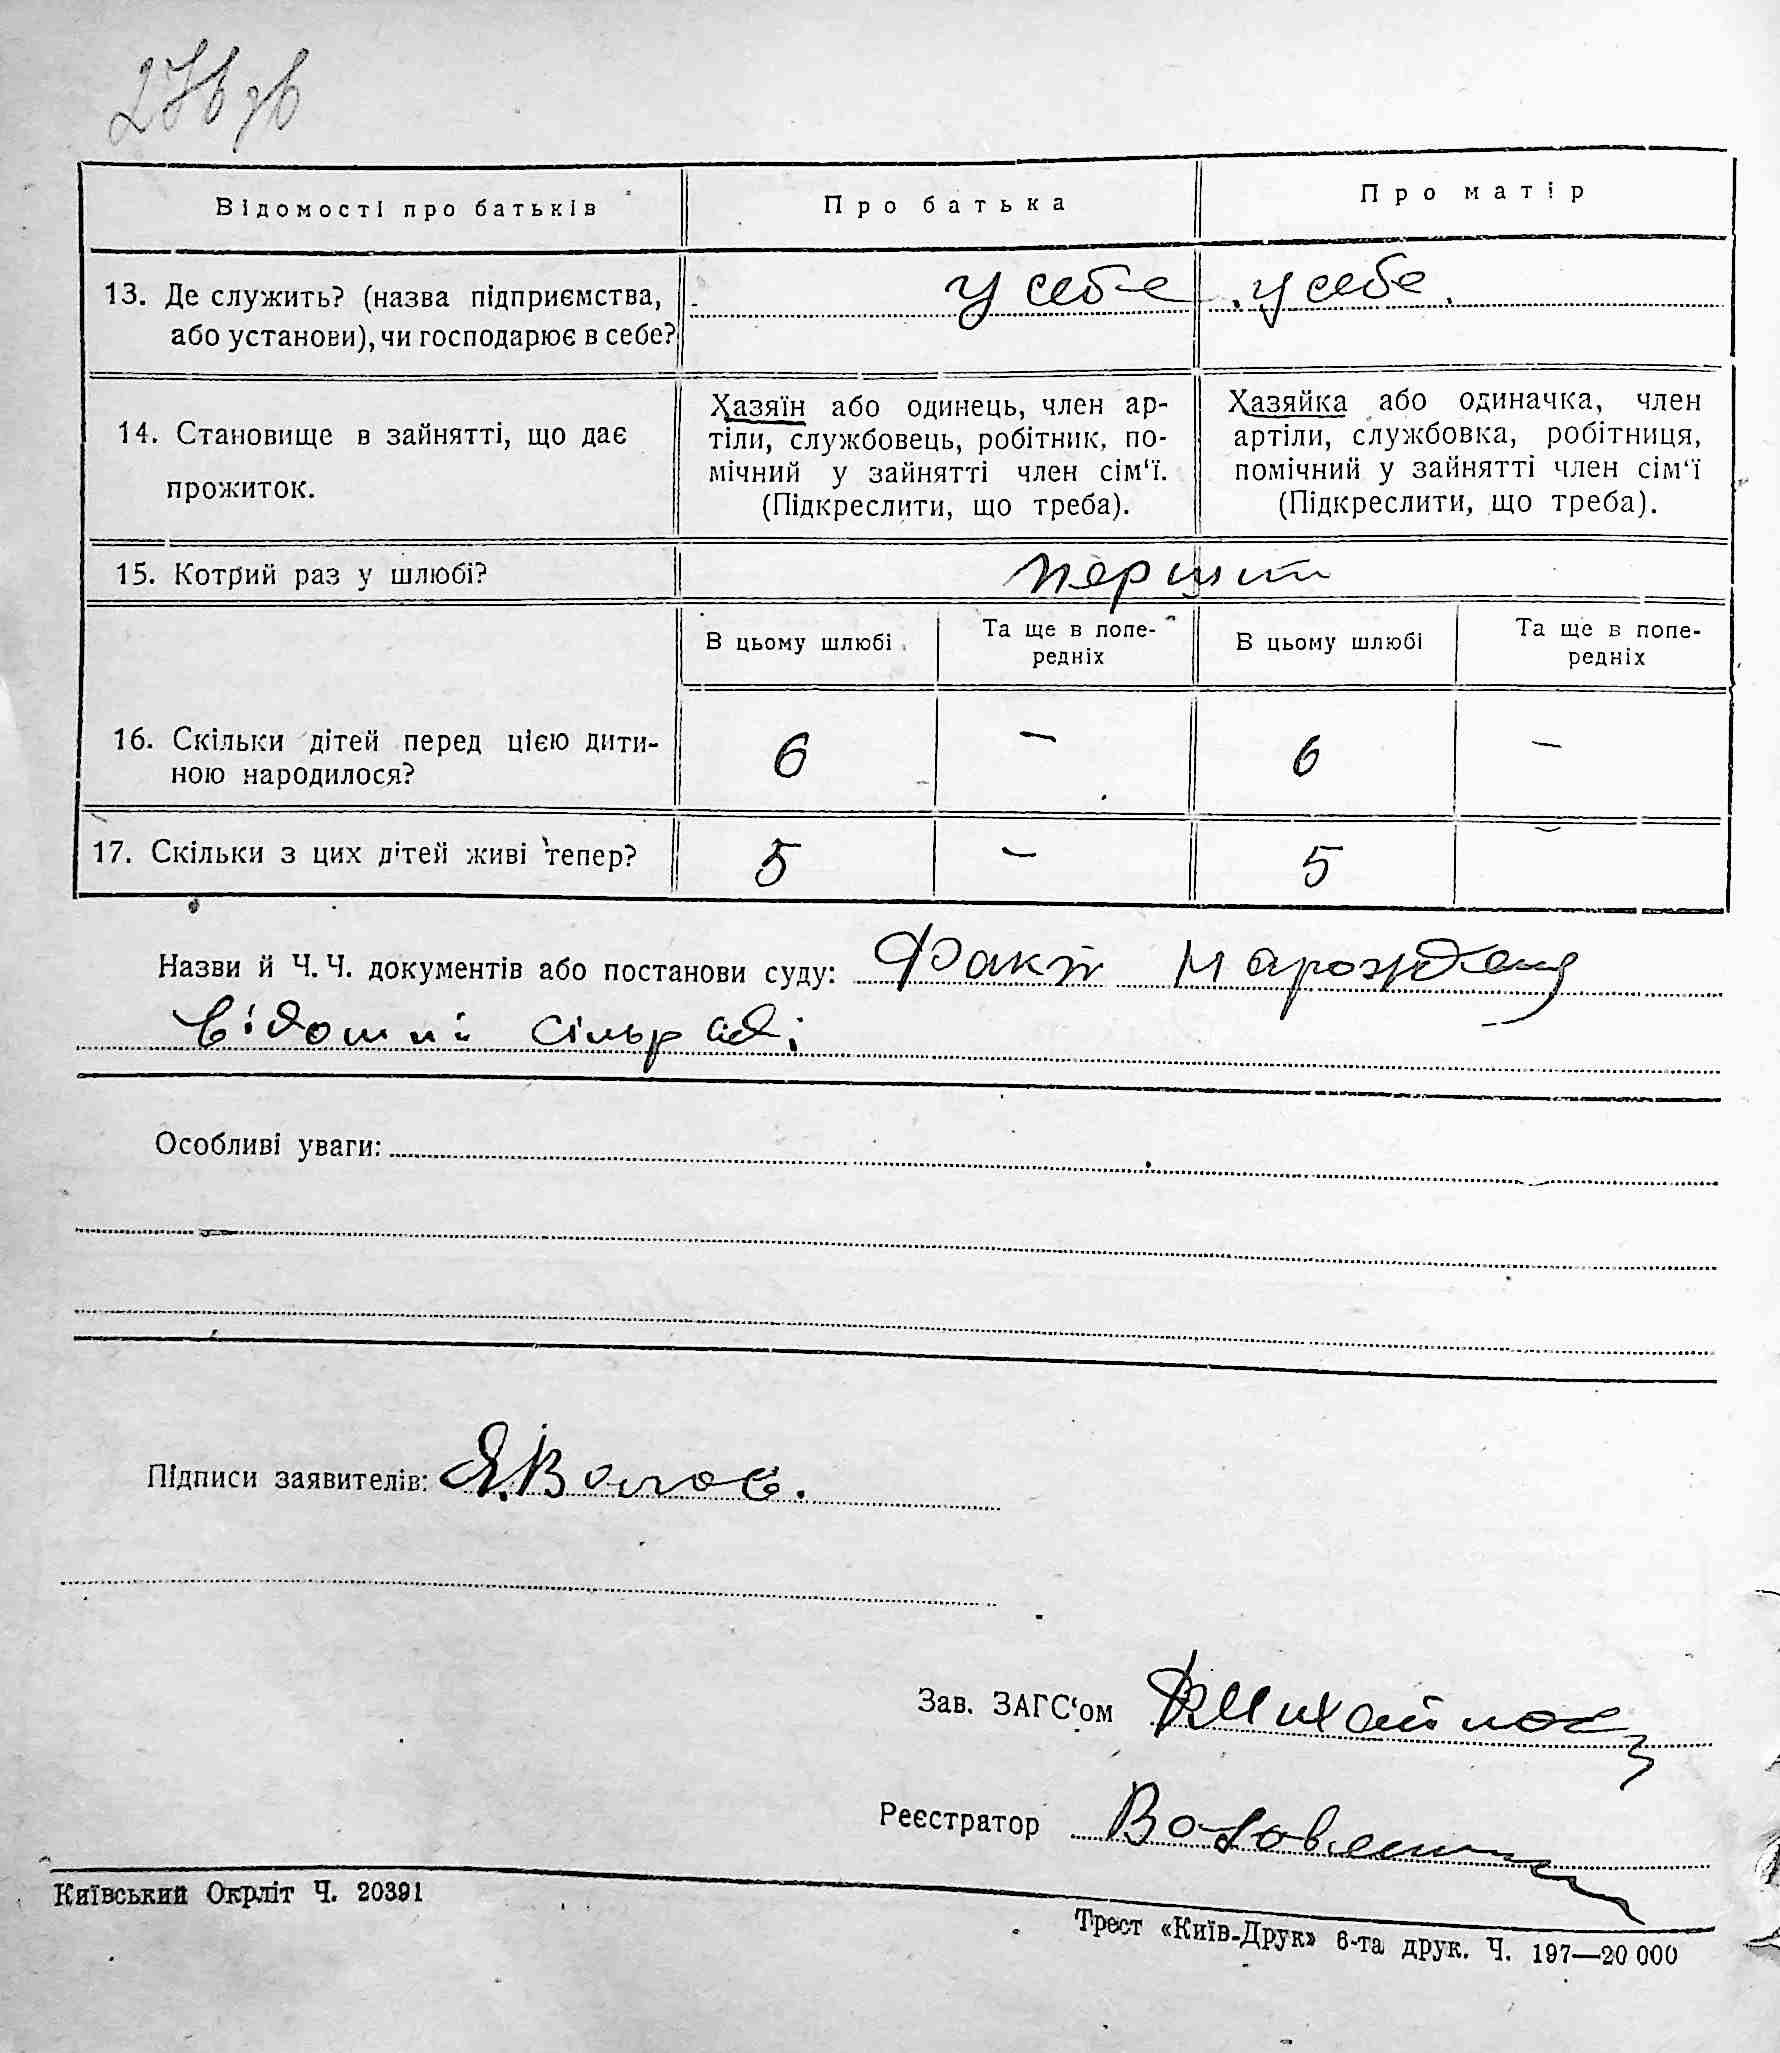 Відомості про батьків
Про батька
Про матір
13. Де служить? (назва підприємства,
або установи), чи господарює в себе?
у себе
у себе
14. Становище в зайнятті, що дає
прожиток.
Хазяїн або одинець, член ар-
тіли, службовець, робітник, по-
мічний у зайнятті член сім‘ї.
(Підкреслити, що треба).
Хазяйка або одиначка, член
артіли, службовка, робітниця,
помічний у зайнятті член сім‘ї
(Підкреслити, що треба).
15. Котрий раз у шлюбі?
перший
В цьому шлюбі
Та ще в попе-
редніх
В цьому шлюбі
Та ще в попе-
редніх
16. Скільки дітей перед цією дити-
ною народилося?
6
—
6
—
17. Скільки з цих дітей живі тепер?
5
—
5
—
Назви й Ч. Ч. документів або постанови суду: Факт народження
відомий сільраді
Особливі уваги:
Підписи заявителів: Я. Волов.
Зав. ЗАГС‘ом
Реєстратор
Київський Окрліт Ч. 20391
Трест «Київ-Друк» 6-та друк. Ч. 197—20 000